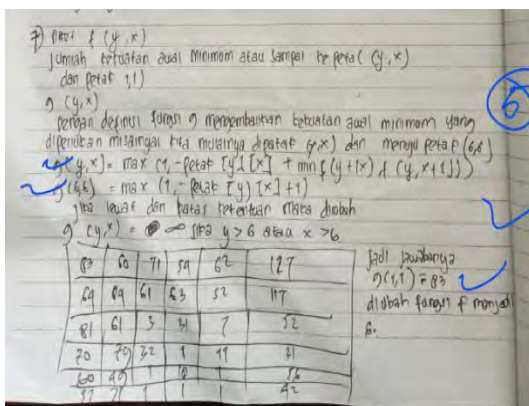 7)
f (y,x)
jumlah kekuatan awal minimum atau sampai ke petak (y,x)
dari petak 1,1)
g (y,x)
dengan definisi fungsi g mengembalikan kekuatan awal minimum yang
diperlukan misalnya kita mulainya dipetak (y,x) dan menuju petak (6,6)
g(y,x) = max (1, -petak [y] [x] + min f (y+1x) f (y,x+1)))
g(6,6) = max (1, -petak [y] [x] +1)
jika lewat dari batas ketentuan maka diubah
g (y,x) = ∞ jika y > 6 atau x > 6
83 60 71 59 62 127
69 89 61 63 52 117
81 61 3 31 7 52
70 79 32 1 11 31
60 49 1 1 56
1 1 1 42
jadi jawabanya
g(1,1) = 83
diubah fungsi f menjadi
6.
5